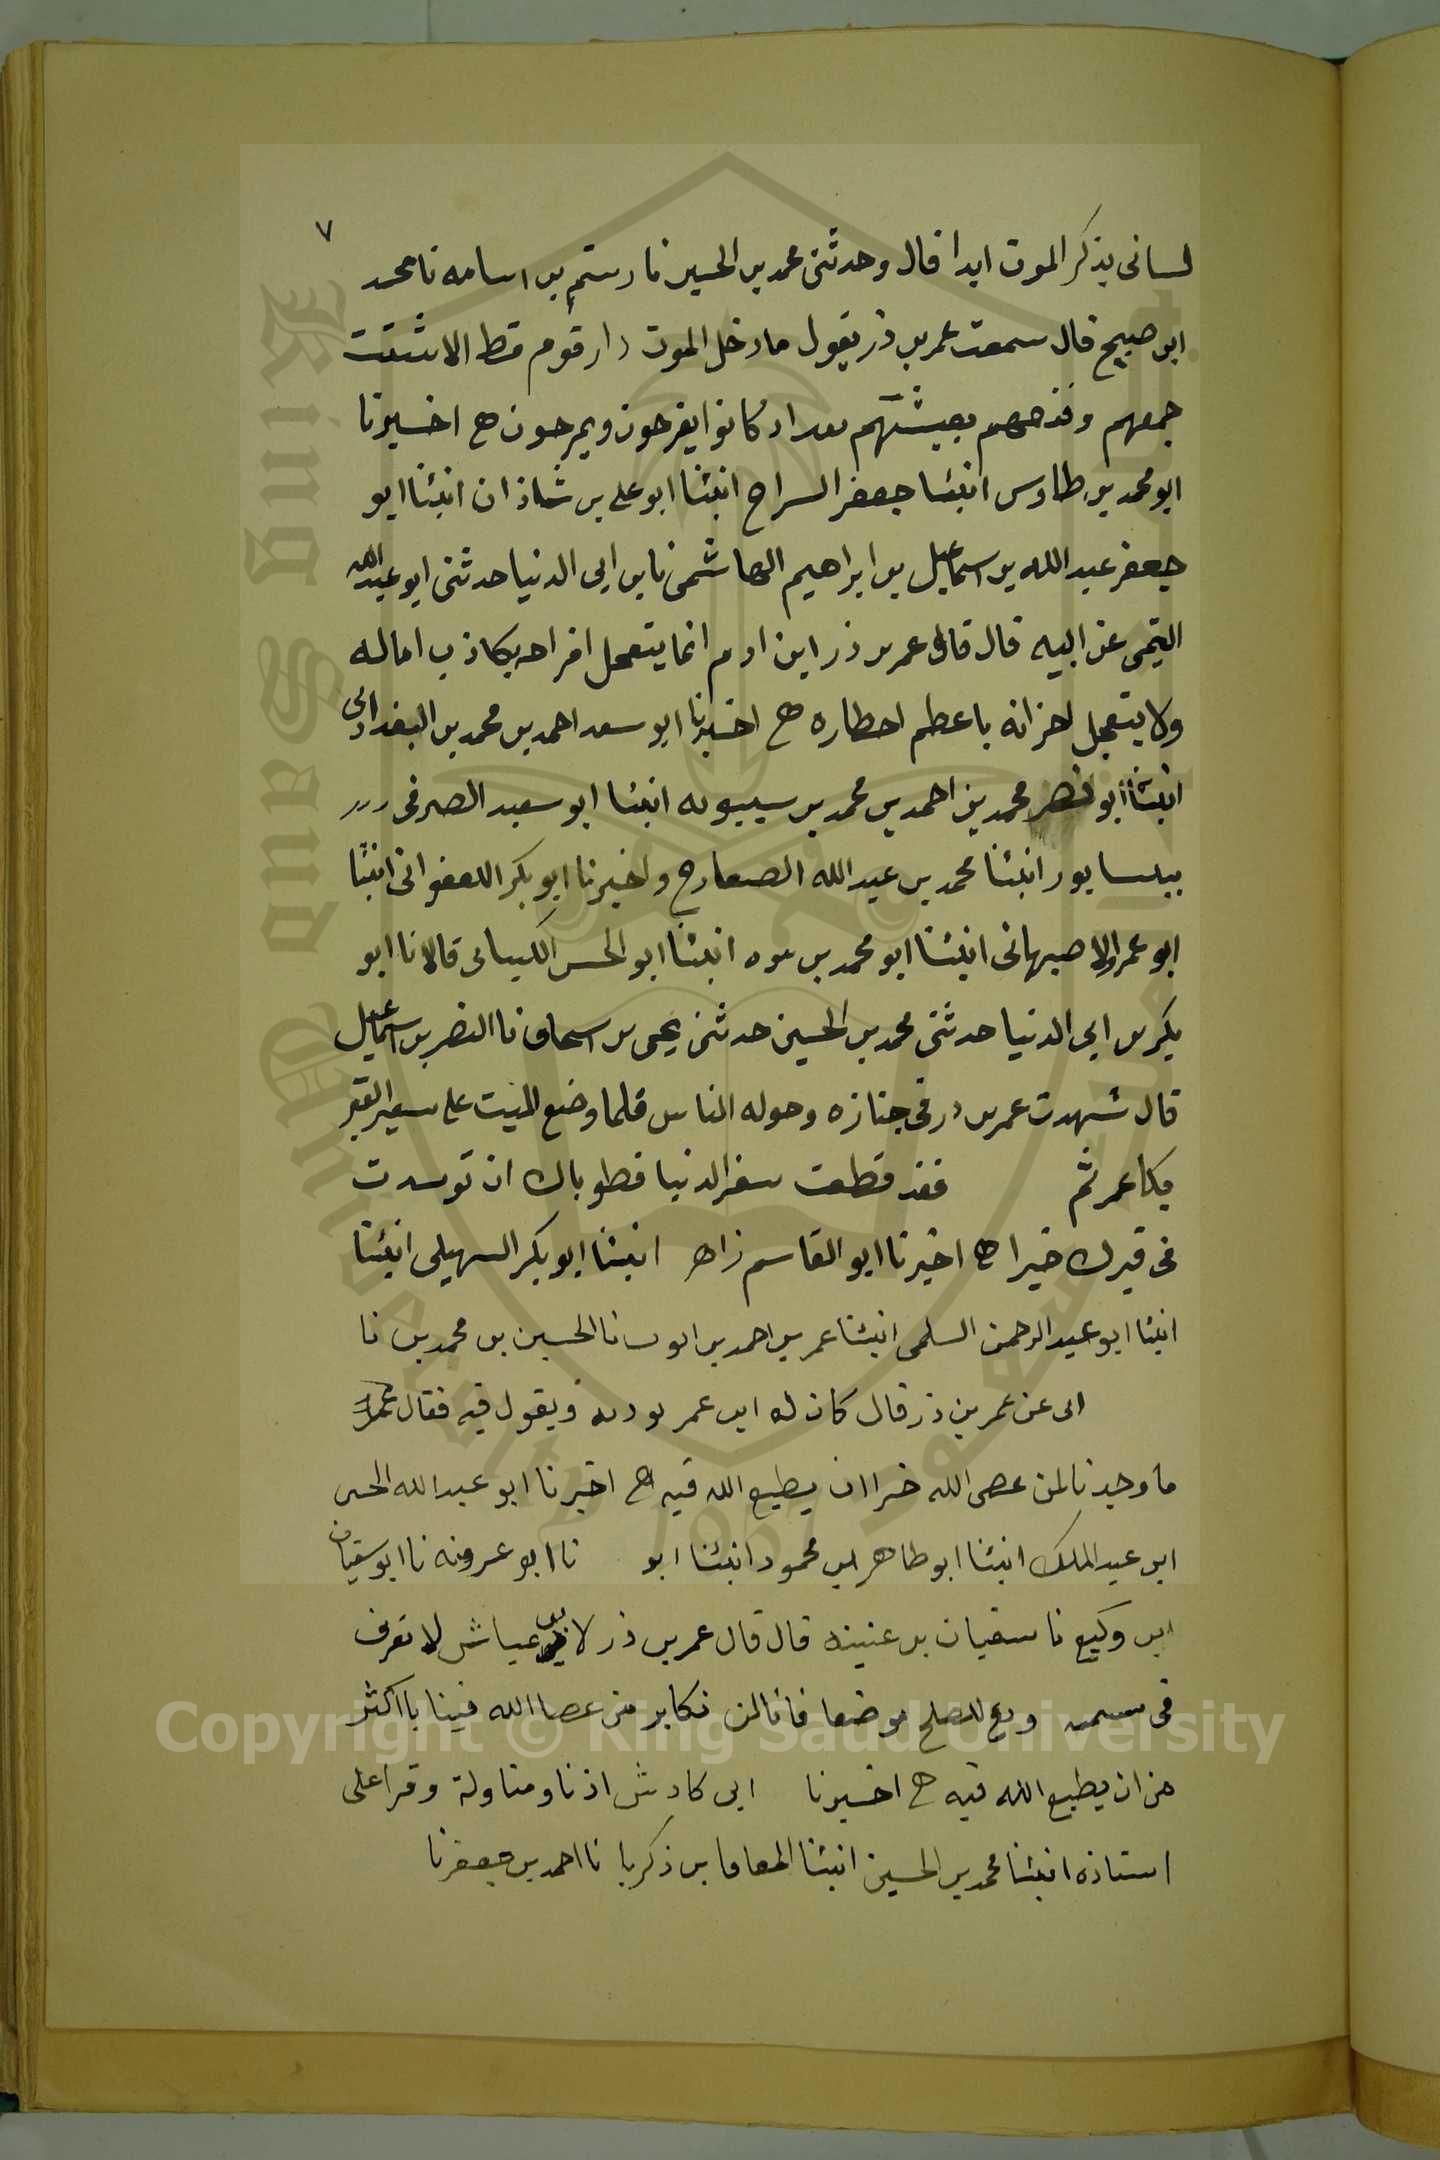 ٧
لسانى بذكر الموت ابدا قال وحدثنى محمد بن الحسين نا رستم بن اسامه نا محمد
ابن صبيح قال سمعت عمر بن ذر يقول ما دخل الموت دار قوم قط الا شتت
جمعهم وقنعهم بعيشتهم بعد اد كانوا يفرحون ويمرحون ح اخبرنا
ابو محمد بن طاوس انبئنا جعفر السراج انبئنا ابو على بن شاذان انبئنا ابو
جعفر عبد الله بن اسماعيل بن ابراهيم الهاشمى نا بن ابى الدنيا حدثنى ابو عبد الله
التيمى عن ابيه قال قال عمر بن ذر ابن ادم انما يتعجل افراحه بكاذب اماله
ولا يتعجل احزانه باعظم اخطاره ح اخبرنا ابو سعد احمد بن محمد بن البغدادى
انبئنا أبو نصر محمد بن احمد بن محمد بن سيبويه انبئنا ابو سعيد الصرفى
بيسابور انبئنا محمد بن عبد الله الصفار ح واخبرنا ابو بكر اللفتوانى انبئنا
ابو عمر الاصبهانى انبئنا ابو محمد بن يوه انبئنا ابو الحسن اللبنانى قالا نا ابو
بكر بن ابى الدنيا حدثنى محمد بن الحسين حدثنى يحيى بن اسحاق نا النضر بن اسماعيل
قال شهدت عمر بن ذر فى جنازه وحوله الناس فلما وضع الميت على شفير القبر
بكا عمر ثم فقد قطعت سفر الدنيا فطوباك ان توسدت
فى قبرك خيرا ح اخبرنا ابو القاسم زاهر انبئنا ابو بكر السهيلى انبئنا
انبئنا ابو عبد الرحمن السلمى انبئنا عمر بن احمد بن نا الحسين بن محمد بن نا
ابى عن عمر بن ذر قال كان له ابن عمر يوديه ويقول فيه فقال عمر
ما وجدنا لمن عصى الله خيرا ان يطيع الله فيه ح اخبرنا ابو عبد الله الحسين
ابن عبد الملك انبئنا ابو طاهر بن محمود انبئنا ابو نا ابو عروبه نا ابو سفيان
ابن وكيع نا سفيان بن عنينه قال قال عمر بن ذر لابن عياش لا تعرف
فى ودع للصلح موضعا فانا لن نكابر من عصا الله فينا باكثر
من ان يطيع الله فيه ح اخبرنا ابى كادش اذنا ومناولة وقرا على
استاذه انبئنا محمد بن الحسين انبئنا المعافا بن زكريا نا احمد بن جعفر نا
Copyright © King Saud University